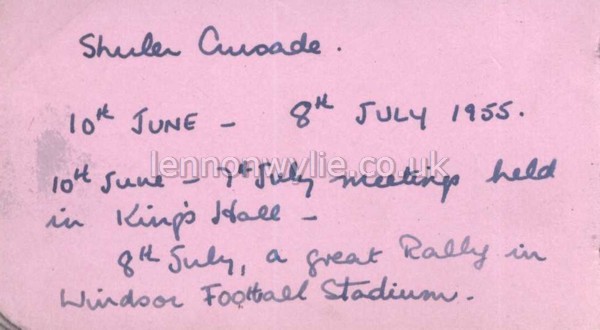 Shuler Crusade.
10th JUNE - 8th JULY 1955.
lennonwylie.co.uk
10th June - 7th July meetings held
in King's Hall -
8th July, a great Rally in
Windsor Football Stadium.